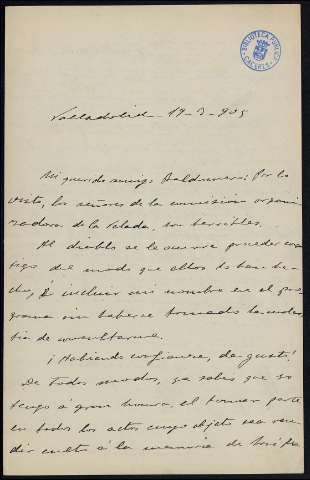 BIBLIOTECA PUBLICA
CACERES
Valladolid - 19-3-905
Mi querido amigo Baldomero: Por lo
visto, los señores de la comisión organi-
zadora de la Velada, son terribles.
Al diablo se le ocurre proceder con-
tigo del modo que ellos lo han he-
cho, é incluir mi nombre en el pro-
grama sin haberse tomado la moles-
tia de consultarme.
¡Habiendo confianza, da gusto!
De todos modos, ya sabes que yo
tengo á gran honra, el formar parte
en todos los actos cuyo objeto sea ren-
dir culto á la memoria de